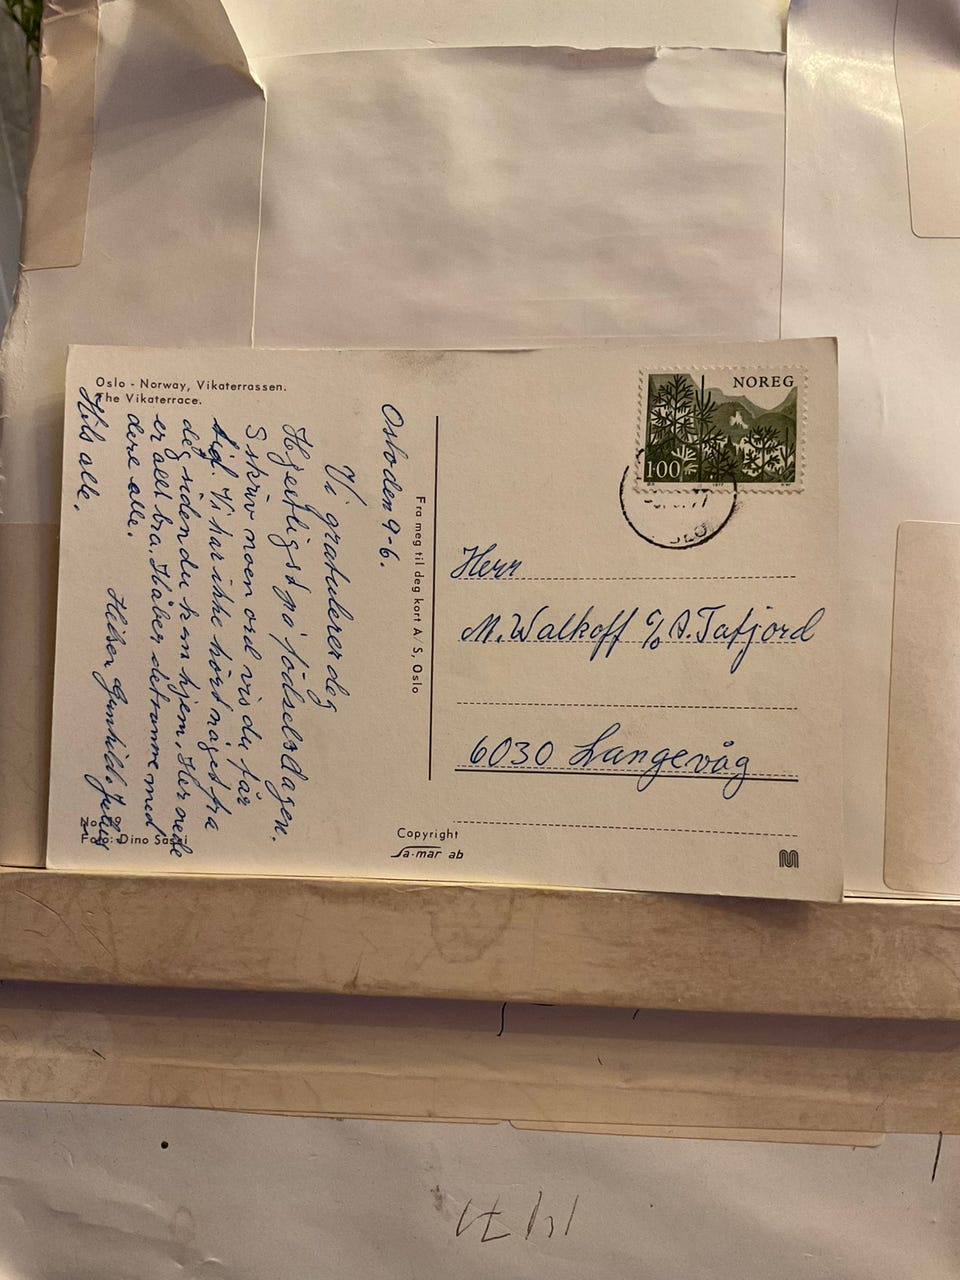 Oslo - Norway, Vikaterrassen.
The Vikaterrace.
Oslo den 9-6.
Vi gratulerer deg
Hjertligst på födselsdagen.
Skriv noen ord vis du får
tid. Vi har ikke hört noget fra
deg siden du kom hjem. Her nede
er alt bra. Håber det samme med
dere alle.
Hilsen Gunhild.
Hils alle.
Foto: Dino Sassi
Fra meg til deg kort A/S, Oslo
Copyright
Sa-mar ab
NOREG
1·00
1977
Herr
M. Walkoff c/o A. Tafjord
6030 Langevåg